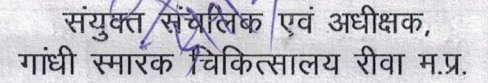 संयुक्त संचालक एवं अधीक्षक,
गांधी स्मारक चिकित्सालय रीवा म.प्र.